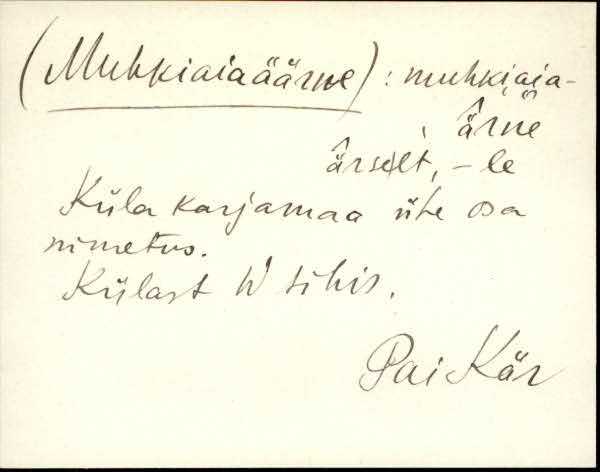 (Muhkiaiaäärne) : muhkiaia-
ä̂rne
ä̂rselt, -le
Küla karjamaa ühe osa
nimetus.
Külast W sihis.
Pai Kär